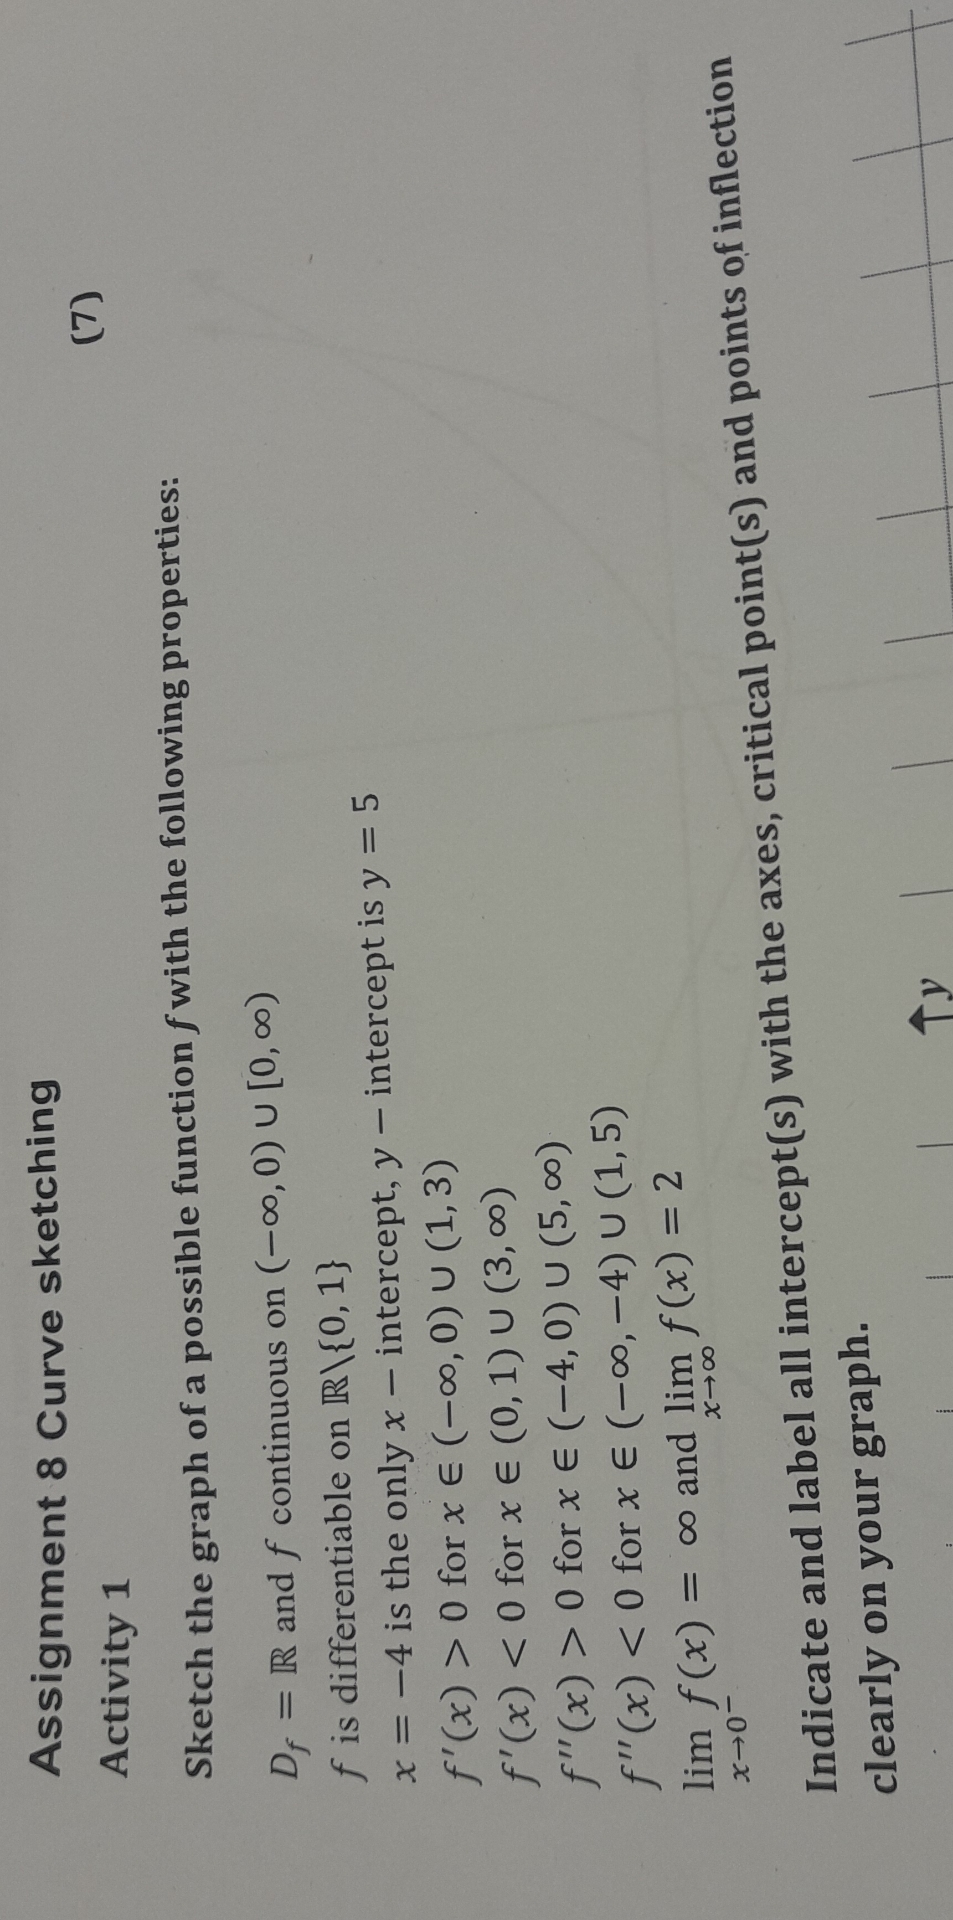 Assignment 8 Curve sketching
Activity 1 (7)
Sketch the graph of a possible function f with the following properties:
D_f = ℝ and f continuous on (−∞, 0) ∪ [0, ∞)
f is differentiable on ℝ\{0, 1}
x = −4 is the only x − intercept, y − intercept is y = 5
f′(x) > 0 for x ∈ (−∞, 0) ∪ (1, 3)
f′(x) < 0 for x ∈ (0, 1) ∪ (3, ∞)
f″(x) > 0 for x ∈ (−4, 0) ∪ (5, ∞)
f″(x) < 0 for x ∈ (−∞, −4) ∪ (1, 5)
lim x→0⁻ f(x) = ∞ and lim x→∞ f(x) = 2
Indicate and label all intercept(s) with the axes, critical point(s) and points of inflection
clearly on your graph.
y